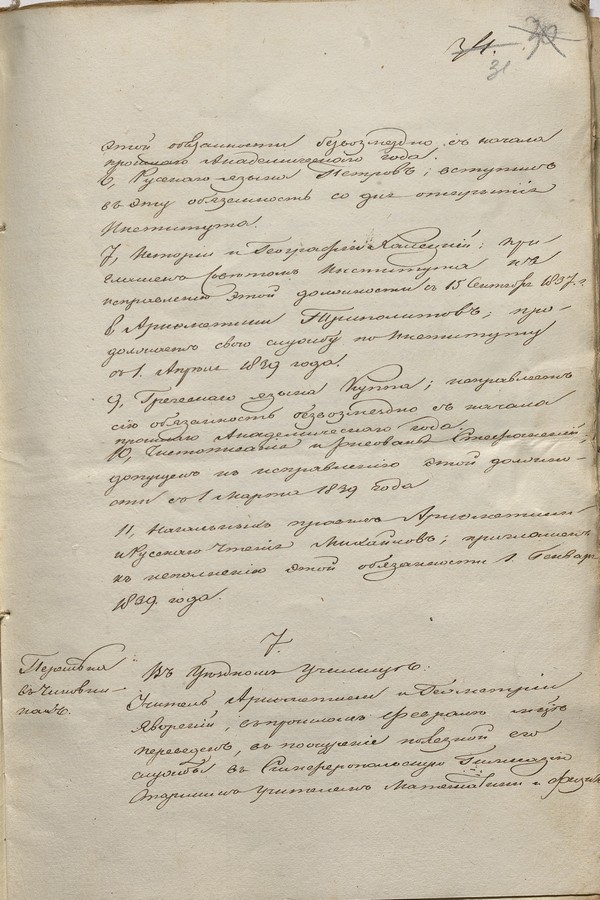 31. 30
31
этой обязанности безвозмездно съ начала
прошлаго Академическаго года.
6, Русскаго языка Петровъ; вступилъ
въ эту обязанность со дня открытія
Института.
7, Исторіи и Географіи Камецкій; при-
глашенъ Совѣтомъ Института къ
исправленію этой должности съ 15 Сентября 1837. г.
8 Ариѳметики Триполитовъ; про-
должаетъ свою службу по Институту
съ 1. Апрѣля 1839 года.
9, Греческаго языка Куппа; исправляетъ
сію обязанность безвозмездно съ начала
прошлаго Академическаго года.
10, Чистописанія и рисованія
допущенъ къ исправленію этой должно-
сти съ 1 Марта 1839 года
11, Начальныхъ правилъ Ариѳметики
и Русскаго чтенія Михайловъ; приглашенъ
къ исполненію этой обязанности 1. Генваря
1839. года.
7.
Перемѣна
въ Чиновни-
кахъ.
Въ Уѣздномъ Училищѣ:
Учитель Ариѳметики и Геометріи
Яворскій, въ прошломъ Февралѣ мѣсяцѣ
переведенъ, въ поощреніе полезной его
службы въ Симферопольскую Гимназію
старшимъ учителемъ Математики и Физики